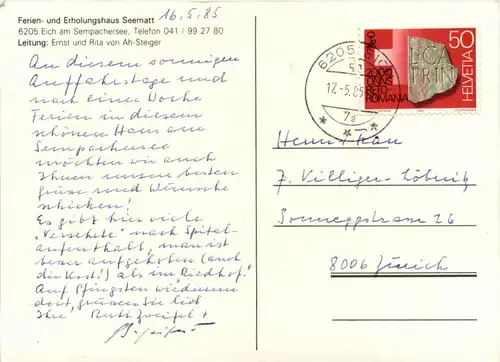 Ferien- und Erholungshaus Seematt
6205 Eich am Sempachersee, Telefon 041 / 99 27 80
Leitung: Ernst und Rita von Ah-Steger
16.5.85
An diesem sonnigen
Auffahrtstage und
nach einer Woche
Ferien in diesem
schönen Haus am
Sempachersee
möchten wir auch
Ihnen unsere besten
Grüsse und Wünsche
schicken!
Es gibt hier viele
"Versehrte" nach Spital-
aufenthalt, man ist
besser aufgehoben (auch
die Kost!) als im Riedhof!
Auf Pfingsten wiederum
dort, grüssen Sie lieb
Ihre Ruth Zweifel +
6205 EICH
17.-5.85
7a
50
HELVETIA
2000
ONNS
RETO-
ROMANIA
Herrn/Frau
J. Villiger-Löbnitz
Sonneggstrasse 26
8006 Zürich